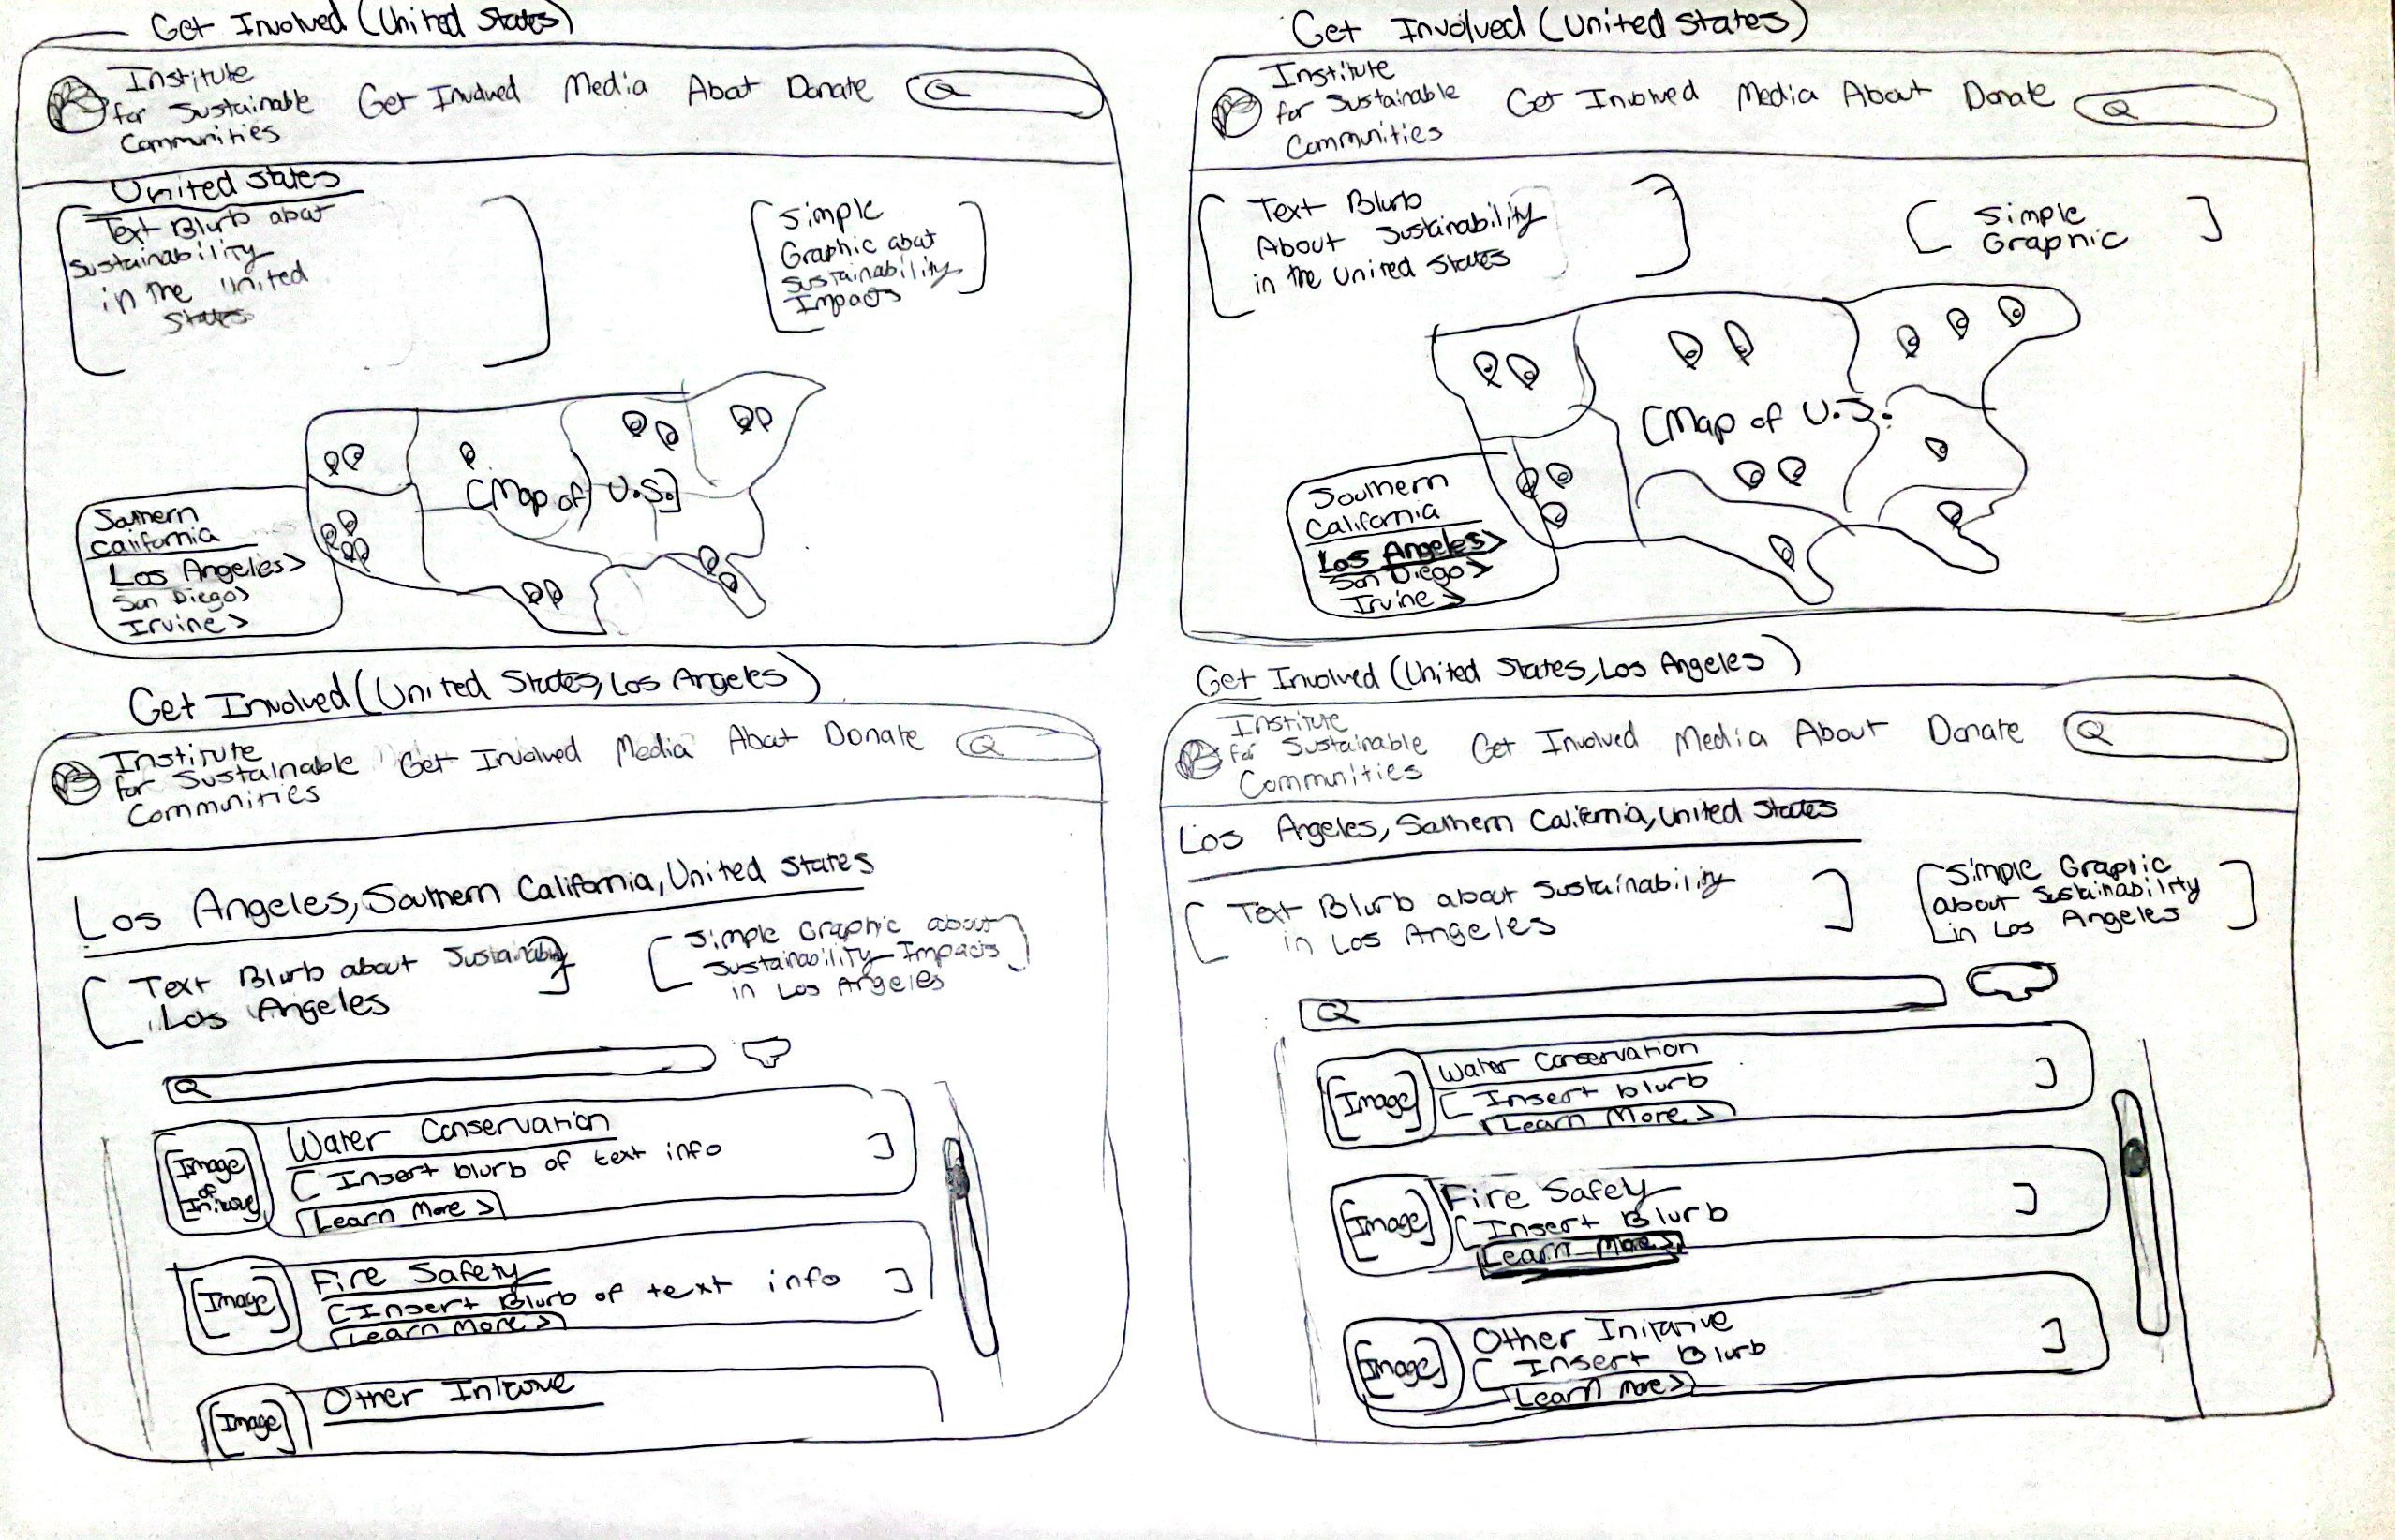 Get Involved (United States)
Institute
for Sustainable
Communities
Get Involved Media About Donate
United States
[Text Blurb about
Sustainability
in the United
States]
[Simple
Graphic about
Sustainability
Impacts]
[Map of U.S.]
Southern
California
Los Angeles >
San Diego >
Irvine >
Get Involved (United States)
Institute
for Sustainable
Communities
Get Involved Media About Donate
[Text Blurb
About Sustainability
in the United States]
[Simple
Graphic]
[Map of U.S.
Southern
California
Los Angeles >
San Diego >
Irvine >
Get Involved (United States, Los Angeles)
Institute
for Sustainable
Communities
Get Involved Media About Donate
Los Angeles, Southern California, United States
[Text Blurb about Sustainability
in Los Angeles]
[Simple Graphic about
Sustainability Impacts
in Los Angeles]
[Image
of
Water Conservation
[Insert blurb of text info]
Learn More >
[Image]
Fire Safety
[Insert Blurb of text info]
Learn More >
[Image]
Other
Get Involved (United States, Los Angeles)
Institute
for Sustainable
Communities
Get Involved Media About Donate
Los Angeles, Southern California, United States
[Text Blurb about Sustainability
in Los Angeles]
[Simple Graphic
about Sustainability
in Los Angeles]
[Image]
Water Conservation
[Insert blurb]
Learn More >
[Image]
Fire Safety
[Insert Blurb]
Learn More >
[Image]
Other Initative
[Insert Blurb]
Learn More >